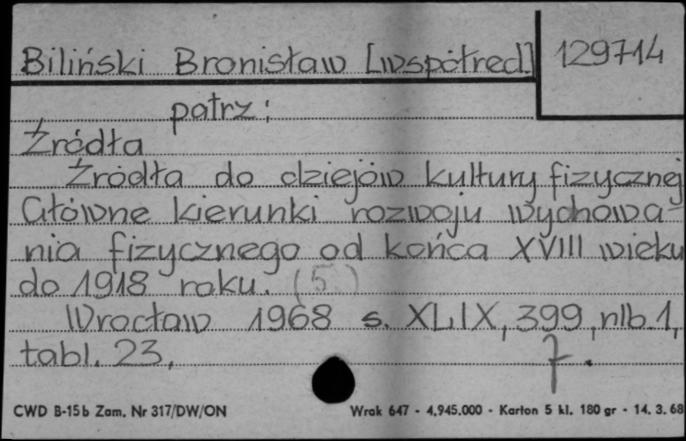 Biliński Bronisław [współred.]
129714
patrz:
Źródła
Źródła do dziejów kultury fizycznej
Główne kierunki rozwoju wychowa-
nia fizycznego od końca XVIII wieku
do 1918 roku. (5.)
Wrocław 1968 s. XLIX, 399, nlb. 1,
tabl. 23,
7.
CWD B-15b Zam. Nr 317/DW/ON
Wrak 647 - 4.945.000 - Karton 5 kl. 180 gr - 14. 3. 68